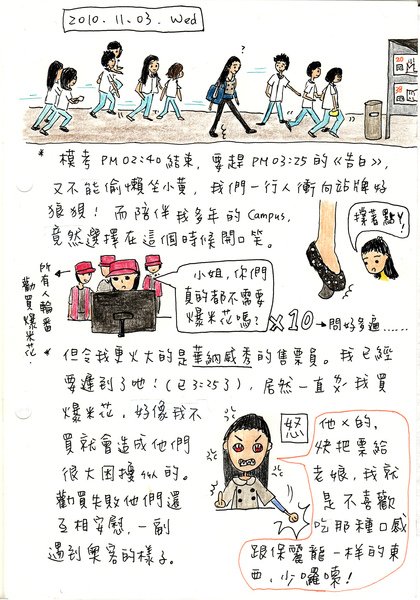 2010. 11. 03. Wed
?
* 模考PM02:40結束，要趕PM03:25的《告白》，
又不能偷懶坐小黃，我們一行人衝向站牌好
狼狽！而陪伴我多年的Campus，
竟然選擇在這個時候開口笑。
撐著點！
所有人輪番
勸買爆米花。
小姐，你們
真的都不需要
爆米花嗎？
×10 → 問好多遍......
* 但令我更火大的是華納威秀的售票員。我已經
要遲到了吔！（已3:25了），居然一直勸我買
爆米花，好像我不
買就會造成他們
很大困擾似的。
勸買失敗他們還
互相安慰，一副
遇到奧客的樣子。
怒
他X的，
快把票給
老娘，我就
是不喜歡
吃那種口感
跟保麗龍一樣的東
西，少囉嗦！